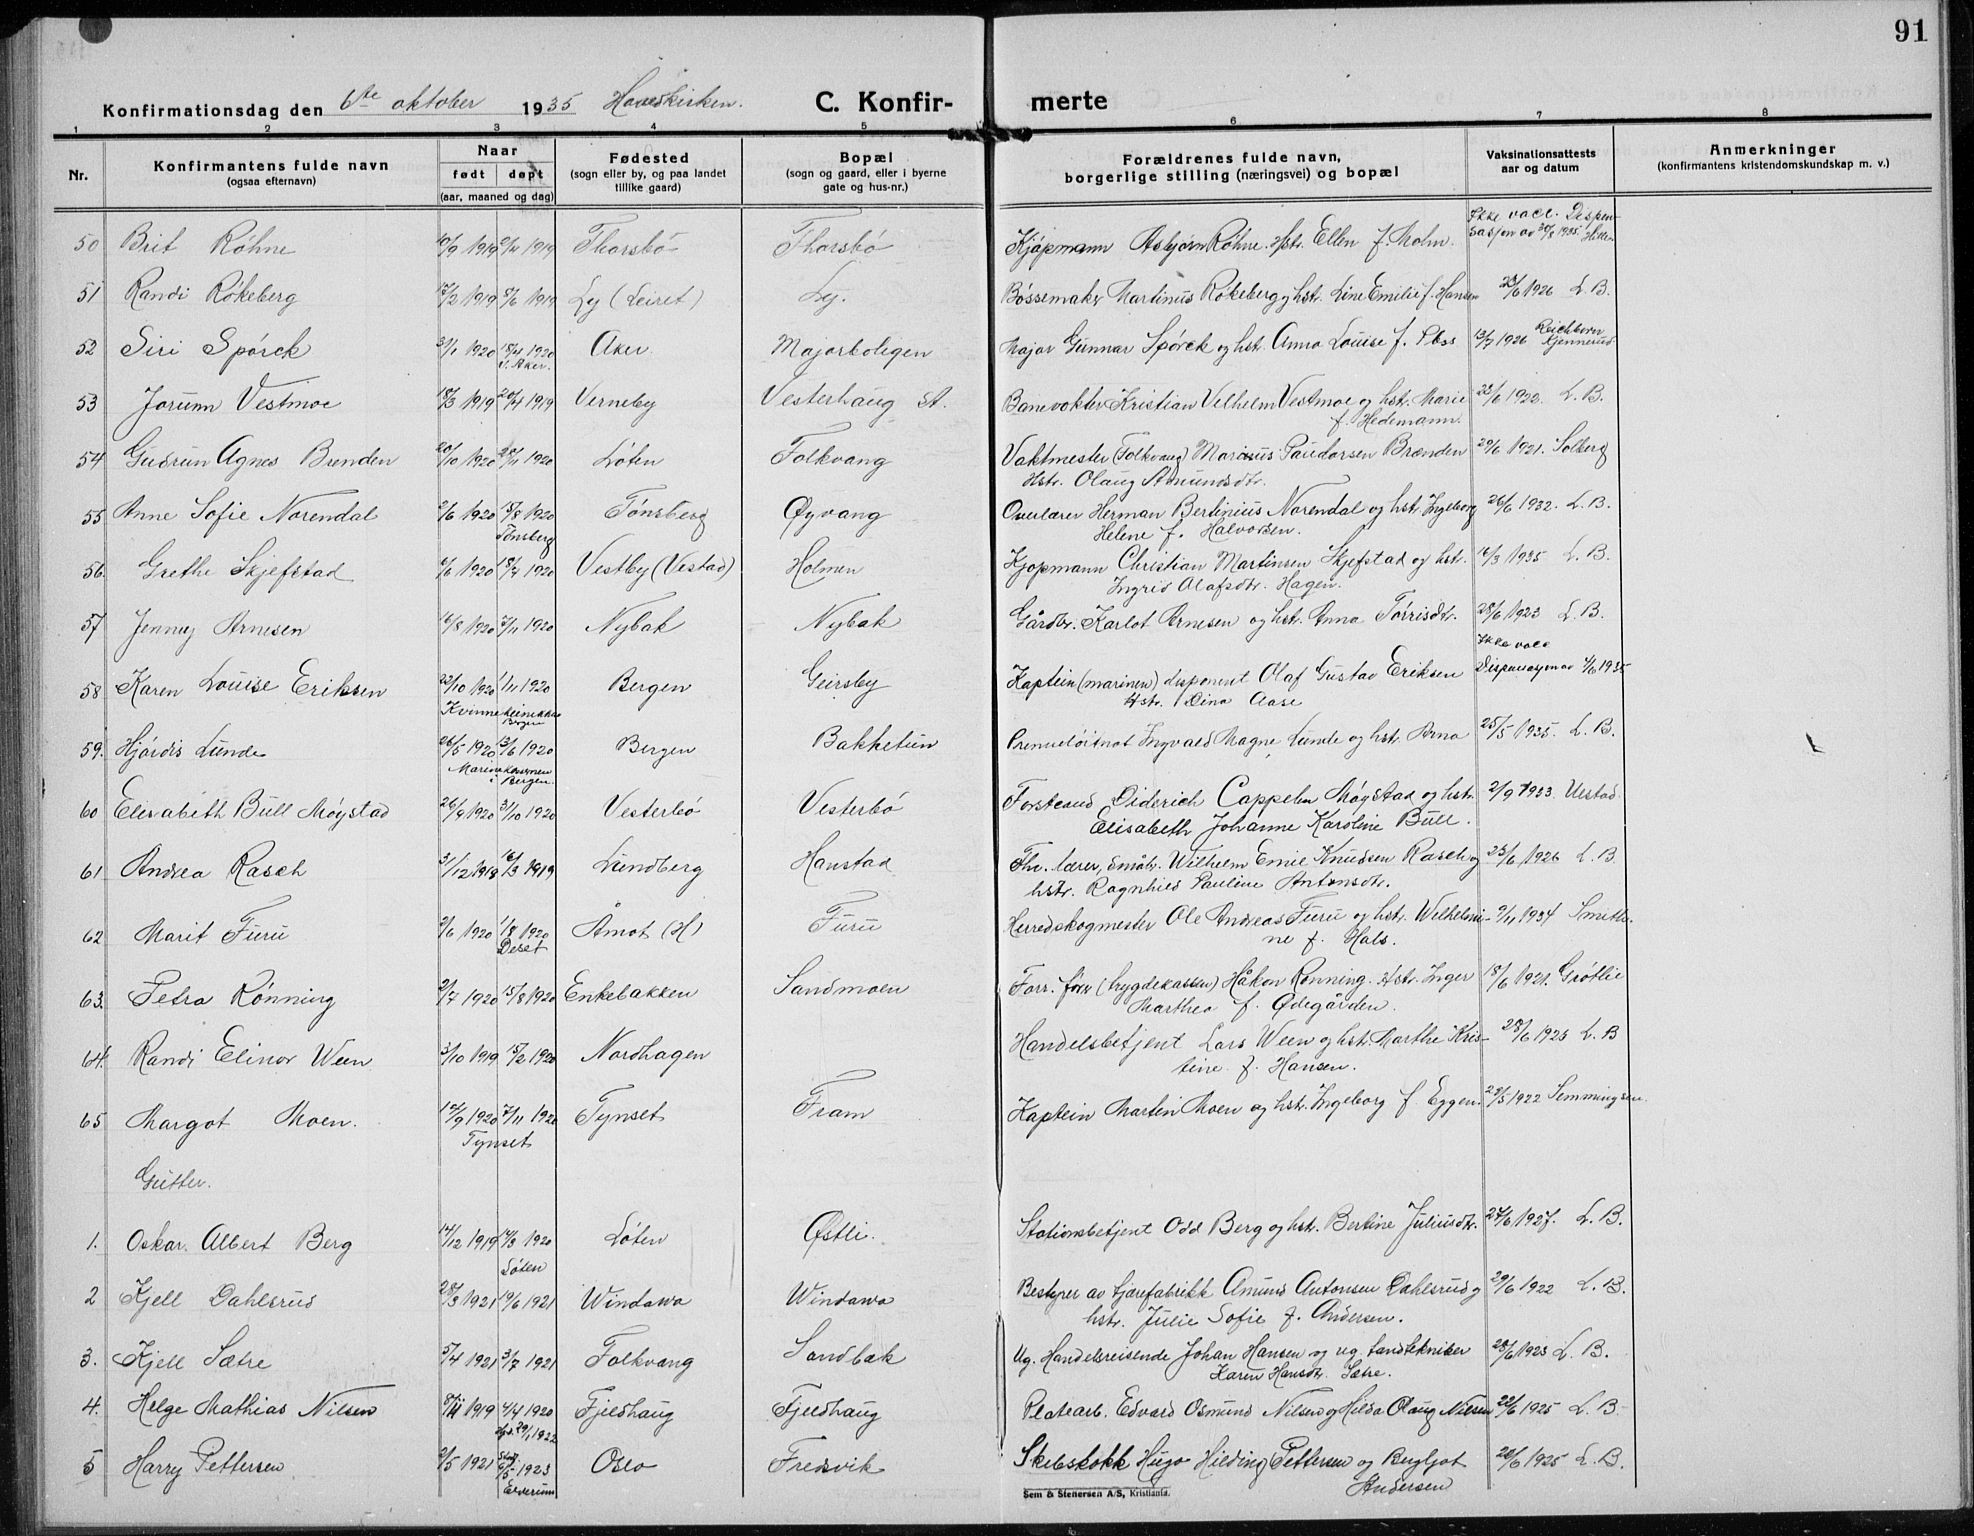 91
Konfirmationsdag den 6te oktober 1935 Hovedkirken. C. Konfirmerte
1 2 3 4 5 6 7 8
Nr.
Konfirmantens fulde navn
(ogsaa efternavn)
Naar
født døpt
(aar, maaned og dag)
Fødested
(sogn eller by, og paa landet
tillike gaard)
Bopæl
(sogn og gaard, eller i byerne
gate og hus-nr.)
Forældrenes fulde navn,
borgerlige stilling (næringsvei) og bopæl
Vaksinationsattests
aar og datum
Anmerkninger
(konfirmantens kristendomskundskap m. v.)
50 Brit Röhne 10/9 1919 2/11 1919 Thorsbö Thorsbö Kjöpmann Asbjørn Röhne. Hstr. Ellen f. Mohn. Ikke vacc. Dispen-
sasjon av 30/8 1935.
51 Randi Rökeberg 17/2 1919 8/6 1919 Ly (Leiret) Ly. Bössemaker Martinus Rökeberg og hstr. Line Emilie f. Hansen 23/6 1926 L. B.
52 Siri Spörck 31/1 1920 18/4 1920 Aker Majorboligen Major Gunnar Spörck og hst. Anna Louise f. 13/7 1926 Reichborn
V. Aker. Kjennerud
53 Jorunn Vestmoe 18/3 1919 20/4 1919 Verneby Vesterhaug st. Banevokter Kristian Vilhelm Vestmoe og hstr. Marie 23/6 1922. L. B.
f. Hedemann.
54 Gudrun Agnes Brenden 20/10 1920 28/11 1920 Löten Folkvang Vaktmester (Folkvang) Marinus Paudorsen Brænden 29/6 1921. Solberg
Hstr. Olaug Amundsdtr.
55 Anne Sofie Norendal 2/6 1920 15/8 1920 Tønsberg Øyvang Ovnlærer Herman Bertinius Norendal og hst. Ingeborg 26/6 1932. L. B.
Tönsberg Helene f. Halvorsen.
56. Grethe Skjefstad 6/6 1920 18/7 1920 Vestby (Vestad) Holmen Kjöpmann Christian Martinsen Skjefstad og hst. 16/3 1935 L. B.
Ingrid Olafsdtr. Hagen.
57 Jenny Arnesen 16/8 1920 7/11 1920 Nybak Nybak Gårdbr. Karlot Arnesen og hst. Anna Törrisdtr. 28/6 1923 L. B.
58 Karen Louise Eriksen 22/10 1920 1/11 1920 Bergen Geirsby Kaptein (marinen) disponent Olaf Gustav Eriksen Ikke vacc
Kvinneklinikken Hstr. Dina Aase Dispensasjon av 4/6 1935
Bergen
59. Hjördis Lunde 26/5 1920 13/6 1920 Bergen Bakketun Premieløitnat Ingvald Magne Lunde og hst. Anna 25/5 1935. L. B.
i Bergen.
60 Elisabeth Bull Möystad 26/9 1920 31/10 1920 Vesterbö Vesterbö Forstcand Diderich Cappelen Möystad og hst. 2/9 1933. Uestad
Elisabeth Johanne Karoline Bull.
61 Andrea Rasch 31/12 1918 16/3 1919 Lundberg Hanstad Thv. lærer, småbr. Wilhelm Emil Knudsen Rasch og 23/6 1926 L. B.
hstr. Ragnhild Pauline Antonsdtr.
62 Marit Furu 2/6 1920 1/8 1920 Åmot (H) Furu Herredskogmester Ole Andreas Furu og hst. Wilhelmi- 9/11 1934 Smitt
Deset ne f. Hals.
63. Petra Rönning 2/7 1920 15/8 1920 Enkebakken Sandmoen Forr. förer (trygdekassen) Håkon Rønning. Hstr. Inger 18/6 1921. Grötlie
Marthea f. Ødegården.
64. Randi Elinor Ween 3/10 1919 15/2 1920 Nordhagen Handelsbetjent Lars Ween og hst. Marthe Kris- 28/6 1923 L. B
tine f. Hansen.
65 Margot Moen. 12/9 1920 7/11 1920 Tynset Fram Kaptein Martin Moen og hst. Ingeborg f. Eggen. 23/5 1922 Semmingsen.
Tynset
Gutter.
1. Oskar Albert Berg 14/12 1919 14/3 1920 Löten Østli. Stationsbetjent Odd Berg og hst. Bertine Juliusdtr. 27/6 1927. L. B.
Löten
2 Kjell Dahlsrud 28/3 1921 19/6 1921 Windawa Windawa Bestyrer av tjærefabrikk Amund Antonsen Dahlsrud og 29/6 1922 L. B.
hstr. Julie Sofie f. Andersen.
3. Kjell Sætre 5/4 1921 3/7 1921 Folkvang Sandbak Ug. Handelsreisende Johan Hansen og ug. tandtekniker 28/6 1923 L. B.
Karen Hansdtr. Sætre.
4. Helge Mathias Nilsen 8/11 1919 4/4 1920 Fjeldhaug Fjeldhaug Platearb. Edvard Osmund Nilsen og Hilda Olaug Nilsen 22/6 1925 L. B.
29/1 1922
5 Harry Pettersen 2/5 1921 6/5 1923 Oslo Fredvik Skibskokk Hugo Hilding Pettersen og Bergljot 20/6 1925 L. B.
Elverum Andersen
Sem & Stenersen A/S, Kristiania.